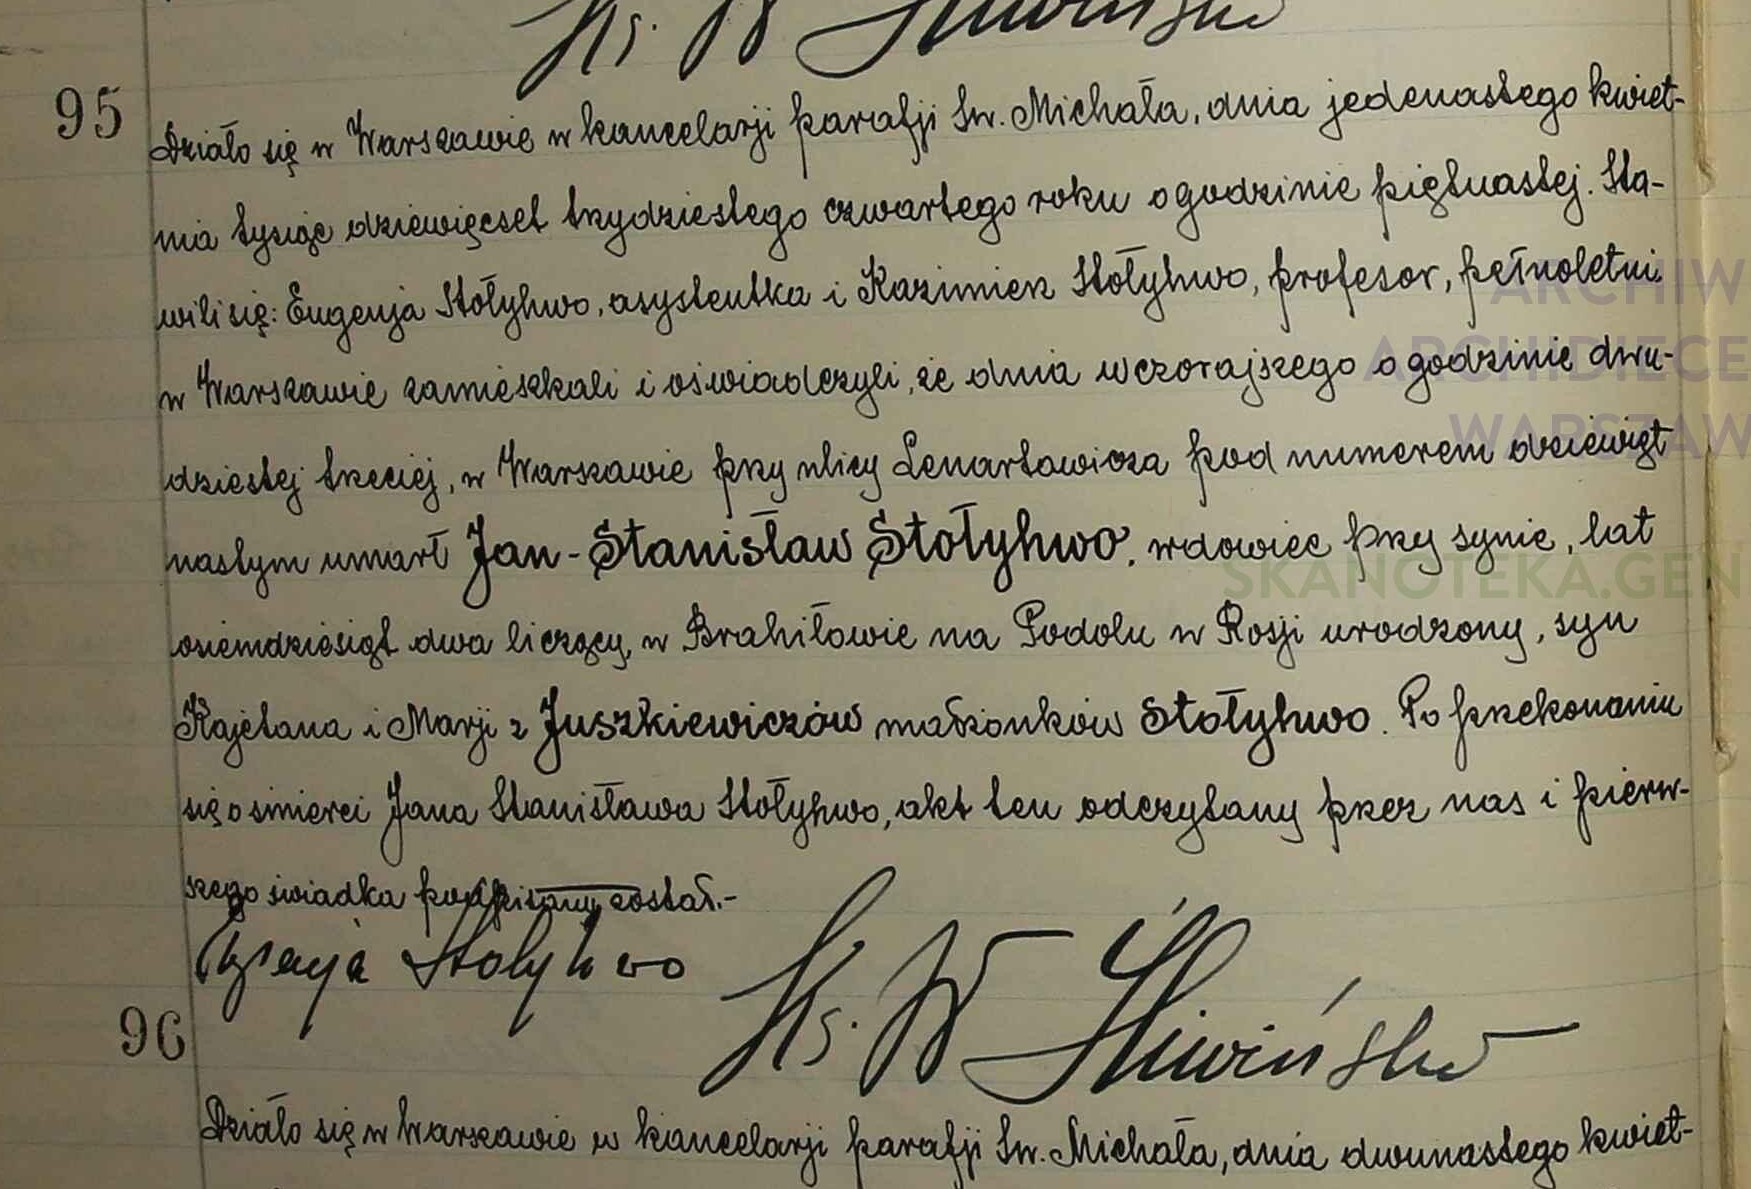 Ks. W Śliwiński
95
Działo się w Warszawie w kancelarji parafji Św. Michała, dnia jedenastego kwiet-
nia tysiąc dziewięćset trzydziestego czwartego roku o godzinie piętnastej. Sta-
wili się: Eugenja Stołyhwo, asystentka i Kazimierz Stołyhwo, profesor, pełnoletni
w Warszawie zamieszkali i oświadczyli, że dnia wczorajszego o godzinie dwu-
dziestej trzeciej, w Warszawie przy ulicy Lenartowicza pod numerem dziewięt
nastym umarł Jan-Stanisław Stołyhwo, wdowiec przy synie, lat
osiemdziesiąt dwa liczący, w Brahiłowie na Podolu w Rosji urodzony, syn
Kajetana i Marji z Juszkiewiczów małżonków Stołyhwo. Po przekonaniu
się o śmierci Jana Stanisława Stołyhwo, akt ten odczytany przez nas i pierw-
szego świadka podpisany został.-
Eugenja Stołyhwo
Ks. W Śliwiński
96
Działo się w Warszawie w kancelarji parafji Św. Michała, dnia dwunastego kwiet-
ARCHIW
ARCHIDIECE
WARSZAW
SKANOTEKA.GEN